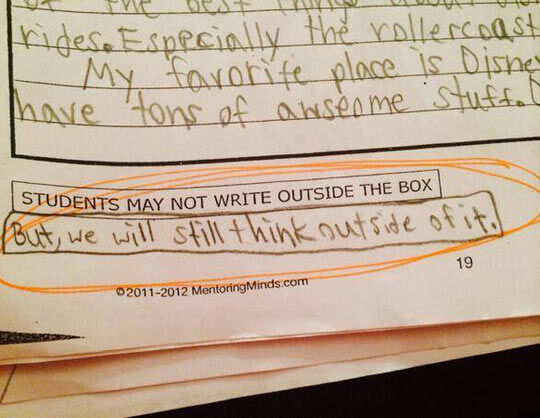 of the best things about
rides. Especially the rollercoast
My favorite place is Disney
have tons of awseome stuff.
STUDENTS MAY NOT WRITE OUTSIDE THE BOX
But, we will still think outside of it.
19
©2011-2012 MentoringMinds.com